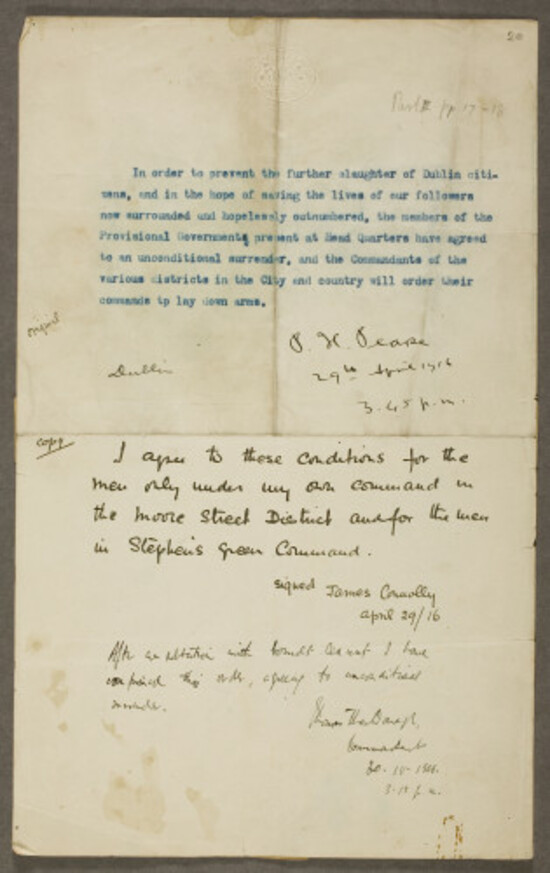 20
Part II pp 17-18
In order to prevent the further slaughter of Dublin citi-
zens, and in the hope of saving the lives of our followers
now surrounded and hopelessly outnumbered, the members of the
Provisional Government present at Head Quarters have agreed
to an unconditional surrender, and the Commandants of the
various districts in the City and country will order their
commands tp lay down arms.
original
P. H. Pearse
Dublin
29th April 1916
3.45 p.m.
copy
I agree to these conditions for the
men only under my own command in
the Moore Street District and for the men
in Stephen's Green Command.
signed James Connolly
April 29/16
After consultation with Comdt Ceannt I have
confirmed this order, agreeing to unconditional
surrender.
Thomas MacDonagh,
Commandant
3.15 p.m.